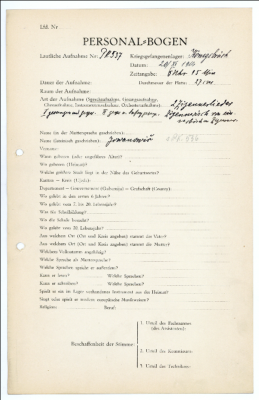 Lfd. Nr.
PERSONAL-BOGEN
Lautliche Aufnahme Nr.: PK 557 Kriegsgefangenenlager: Königsbrück
Datum:
Zeitangabe: 5 Uhr 15 Min
Dauer der Aufnahme: Durchmesser der Platte: 27 cm
Raum der Aufnahme:
Art der Aufnahme (Sprechaufnahme, Gesangsaufnahme, 2 Zigeunerlieder
Choraufnahme, Instrumentenaufnahme, Orchesteraufnahme):
Name (in der Muttersprache geschrieben):
Name (lateinisch geschrieben): Jowanowić
Vorname:
Wann geboren (oder ungefähres Alter)?
Wo geboren (Heimat)?
Welche größere Stadt liegt in der Nähe des Geburtsortes?
Kanton — Kreis (Ujezd):
Departement — Gouvernement (Gubernija) — Grafschaft (County):
Wo gelebt in den ersten 6 Jahren?
Wo gelebt vom 7. bis 20. Lebensjahr?
Was für Schulbildung?
Wo die Schule besucht?
Wo gelebt vom 20. Lebensjahr?
Aus welchem Ort (Ort und Kreis angeben) stammt der Vater?
Aus welchem Ort (Ort und Kreis angeben) stammt die Mutter?
Welchem Volksstamm angehörig?
Welche Sprache als Muttersprache?
Welche Sprachen spricht er außerdem?
Kann er lesen? Welche Sprachen?
Kann er schreiben? Welche Sprachen?
Spielt er ein im Lager vorhandenes Instrument aus der Heimat?
Singt oder spielt er moderne europäische Musikweisen?
Religion: Beruf:
1. Urteil des Fachmannes
(des Assistenten):
Beschaffenheit der Stimme:
2. Urteil des Kommissars:
3. Urteil des Technikers: